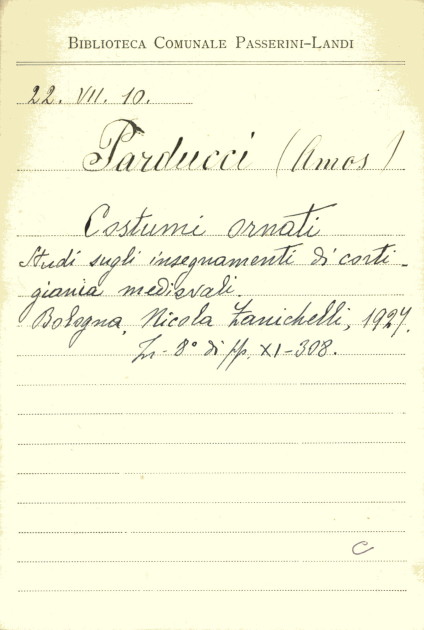 BIBLIOTECA COMUNALE PASSERINI-LANDI
22. VII. 10.
Parducci (Amos)
Costumi ornati
Studi sugli insegnamenti di corti-
giania medievali.
Bologna, Nicola Zanichelli, 1927.
In-8° di pp. XI-308.
C